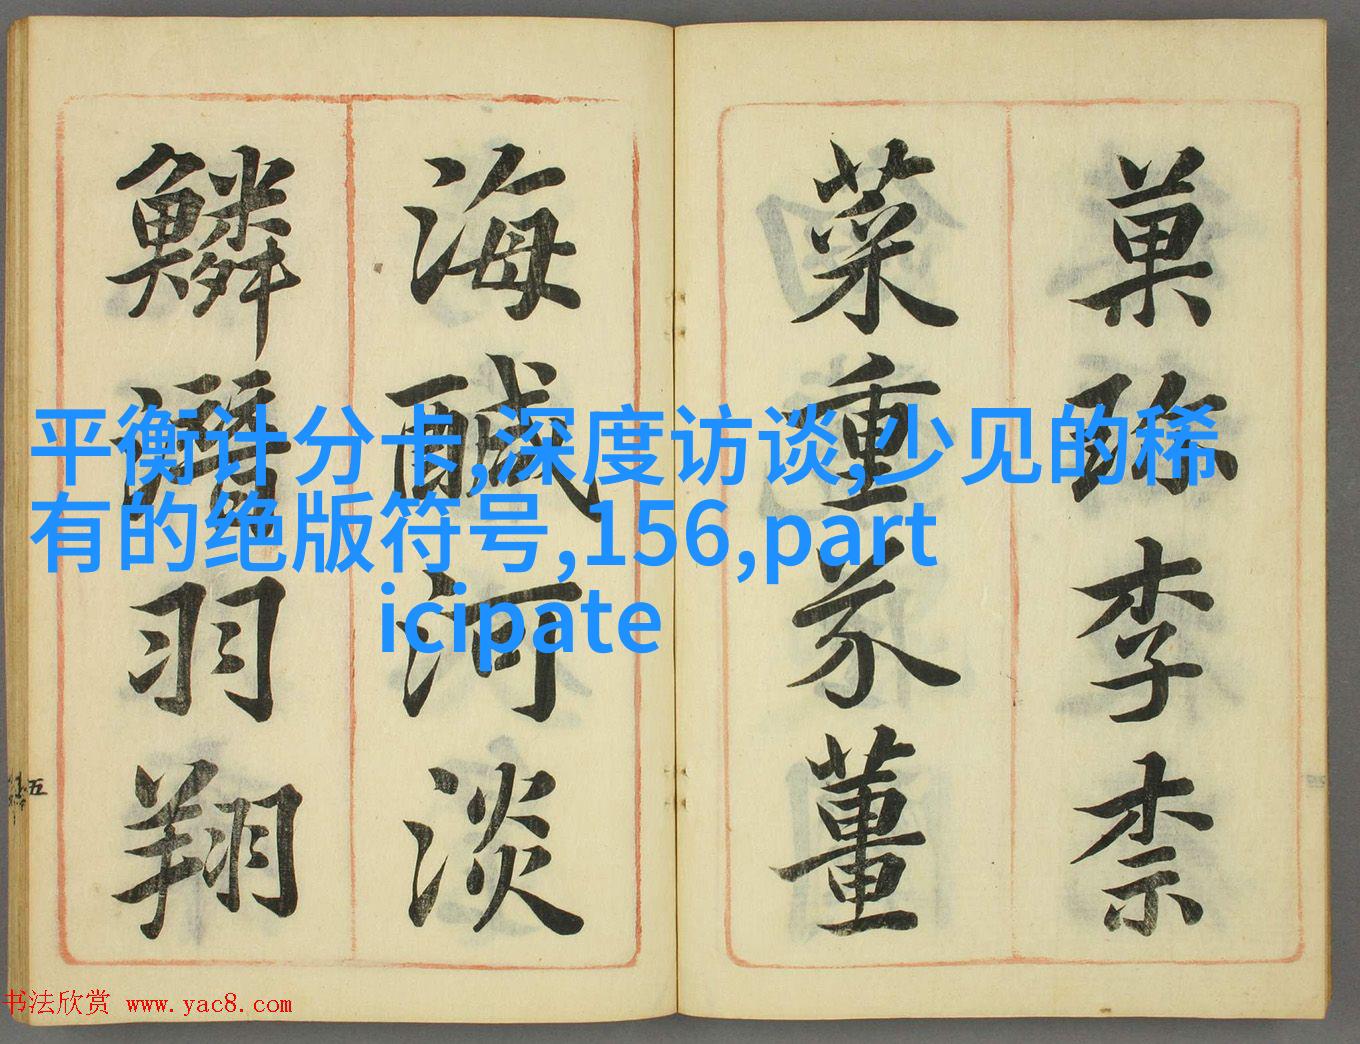 菓珍李柰
菜重芥薑
海醎河淡
鱗潛羽翔
五
平衡计分卡,深度访谈,少见的稀
有的绝版符号,156,part
icipate
书法欣赏 www.yac8.com